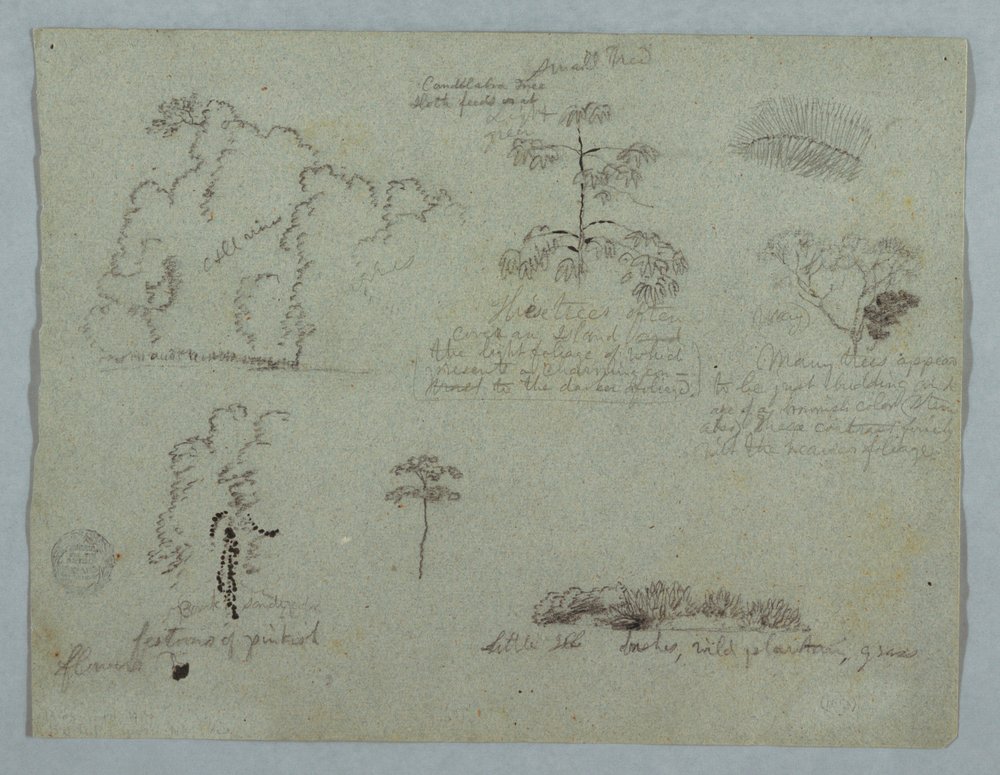 Small tree
Candelabra tree
Sloth feeds on it
Light
green
all vines
These trees often
cover an Island and
the light foliage of which
presents a charming con-
trast to the darker
(Gray)
Many trees appear
to be just budding and
are of a brownish color
also) These contrast finely
with the heavier foliage
festoons of pinkish
flowers
little
bushes, wild plantain, grass